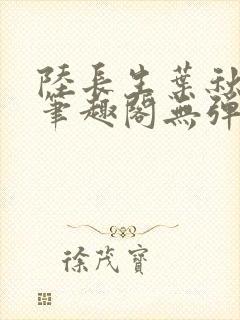 陸長生葉秋
筆趣閣無彈
徐茂寶